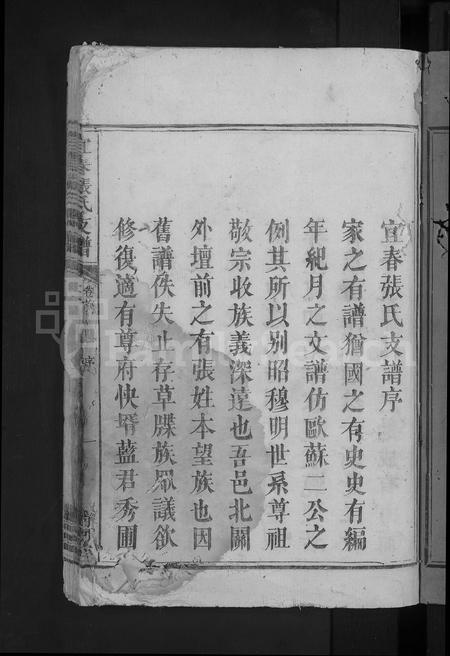 宜春張氏支譜序
家之有譜猶國之有史史有編
年紀月之文譜仿歐蘇二公之
例其所以別昭穆明世系尊祖
敬宗收族義深遠也吾邑北關
外壇前之有張姓本望族也因
舊譜佚失止存草牒族眾議欲
修復適有尊府快壻藍君秀圃
宜春張氏支譜
卷首
序
一
FamilySearch